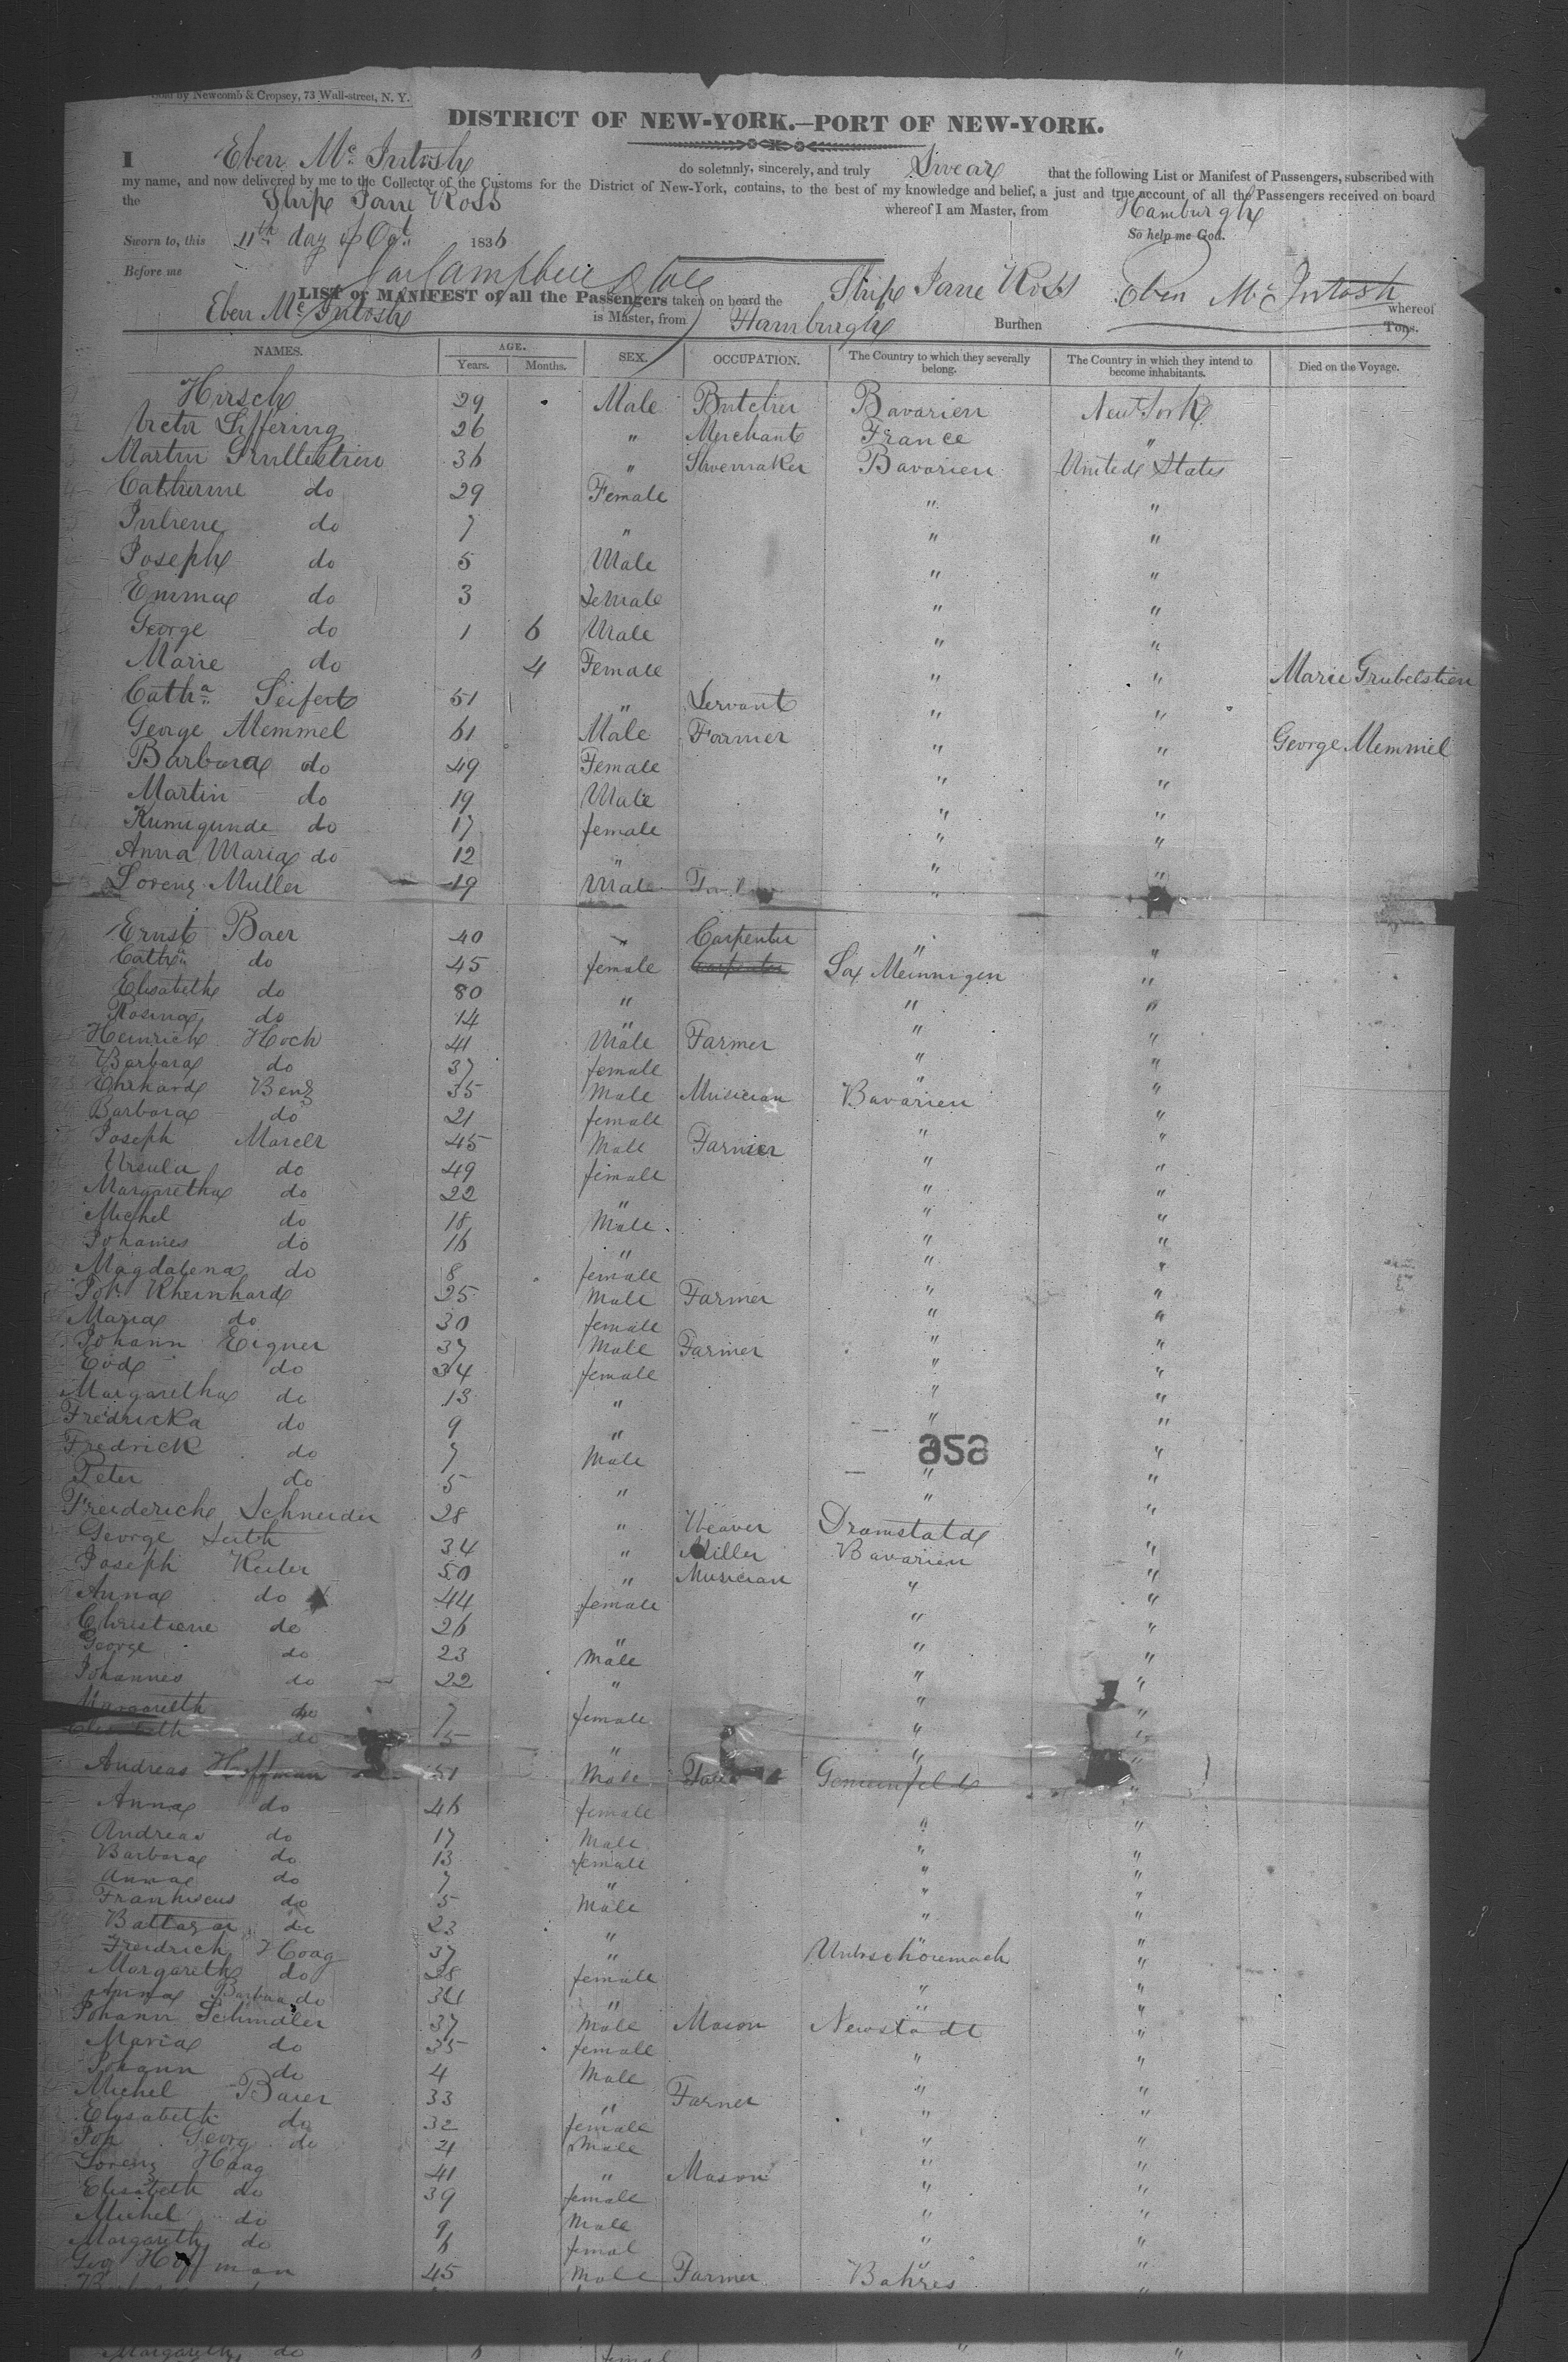 by Newcomb & Cropsey, 73 Wall-street, N. Y.
DISTRICT OF NEW-YORK.—PORT OF NEW-YORK.
I Eben Mc Intosh do solemnly, sincerely, and truly Swear that the following List or Manifest of Passengers, subscribed with
my name, and now delivered by me to the Collector of the Customs for the District of New-York, contains, to the best of my knowledge and belief, a just and true account of all the Passengers received on board
the Ship Jane Ross whereof I am Master, from Hamburgh
Sworn to, this 11th day of Oct. 1836 So help me God.
Before me Eben Mc Intosh
LIST or MANIFEST of all the Passengers taken on board the Ship Jane Ross whereof
Eben Mc Intosh is Master, from Hamburgh Burthen Tons.
NAMES. AGE. SEX. OCCUPATION. The Country to which they severally belong. The Country in which they intend to become inhabitants. Died on the Voyage.
Years. Months.
Hirsch 29 Male Butcher Bavarien New York
Victor Siffering 26 " Merchant France "
Martin 36 " Shoemaker Bavarien United States
Catherine do 29 Female " "
do 7 " " "
Joseph do 5 Male " "
Emma do 3 Female " "
George do 1 6 Male " "
Marie do 4 Female " " Marie Grubelstien
Catha Seifert 51 " Servant " "
George Memmel 61 Male Farmer " " George Memmel
Barbara do 49 Female " "
Martin do 19 Male " "
Kumigunde do 17 female " "
Anna Maria do 12 " " "
Lorenz Muller 19 Male " "
Ernst Baer 40 " Carpenter " "
Cathn do 45 female Carpenter Sax Meinnigen "
Elisabeth do 80 " " "
Rosina do 14 " " "
Heinrich Hoch 41 Male Farmer " "
Barbara do 37 female " "
Ehrhard Benz 35 Male Musician Bavarien "
Barbara do 21 female " "
Joseph 45 Male Farmer " "
Ursula do 49 female " "
Margaretha do 22 " " "
Michel do 18 Male " "
Johannes do 16 " " "
Magdalena do 8 female " "
Joh. Rheinhard 25 Male Farmer " "
Maria do 30 female " "
Johann Eigner 37 Male Farmer " "
Eva do 34 female " "
Margaretha do 13 " " "
Fredricka do 9 " " "
Fredrick do 7 Male " "
Peter do 5 " " "
Freiderich Schneider 28 " Weaver Dramstatd "
George 34 " Miller Bavarien "
Joseph Keiler 50 " Musician " "
Anna do 44 female " "
Christiene do 26 " " "
George do 23 Male " "
Johannes do 22 " " "
Margareth do 7 female " "
Elisabeth do 5 " " "
Andreas Hoffman 51 Male Gemeinfeld "
Anna do 46 female " "
Andreas do 17 Male " "
Barbara do 13 female " "
Anna do 7 " " "
Franhiscus do 5 Male " "
Baltasar do 23 " "
Freidrich Hoag 37 " "
Margareth do 28 female " "
Anna Barbara do " " "
Johann Schindler 37 Male Mason Newstadt "
Maria do 35 female " "
Johann do 4 Male " "
Michel Baier 33 " Farmer " "
Elysabeth do 32 female " "
Joh Georg do 4 Male " "
Lorenz Haag 41 " Mason " "
Elisabeth do 39 female " "
Michel do 9 Male " "
Margareth do 6 femal " "
Geo Hoffman 45 Male Farmer "
Margareth do 6 femal " "